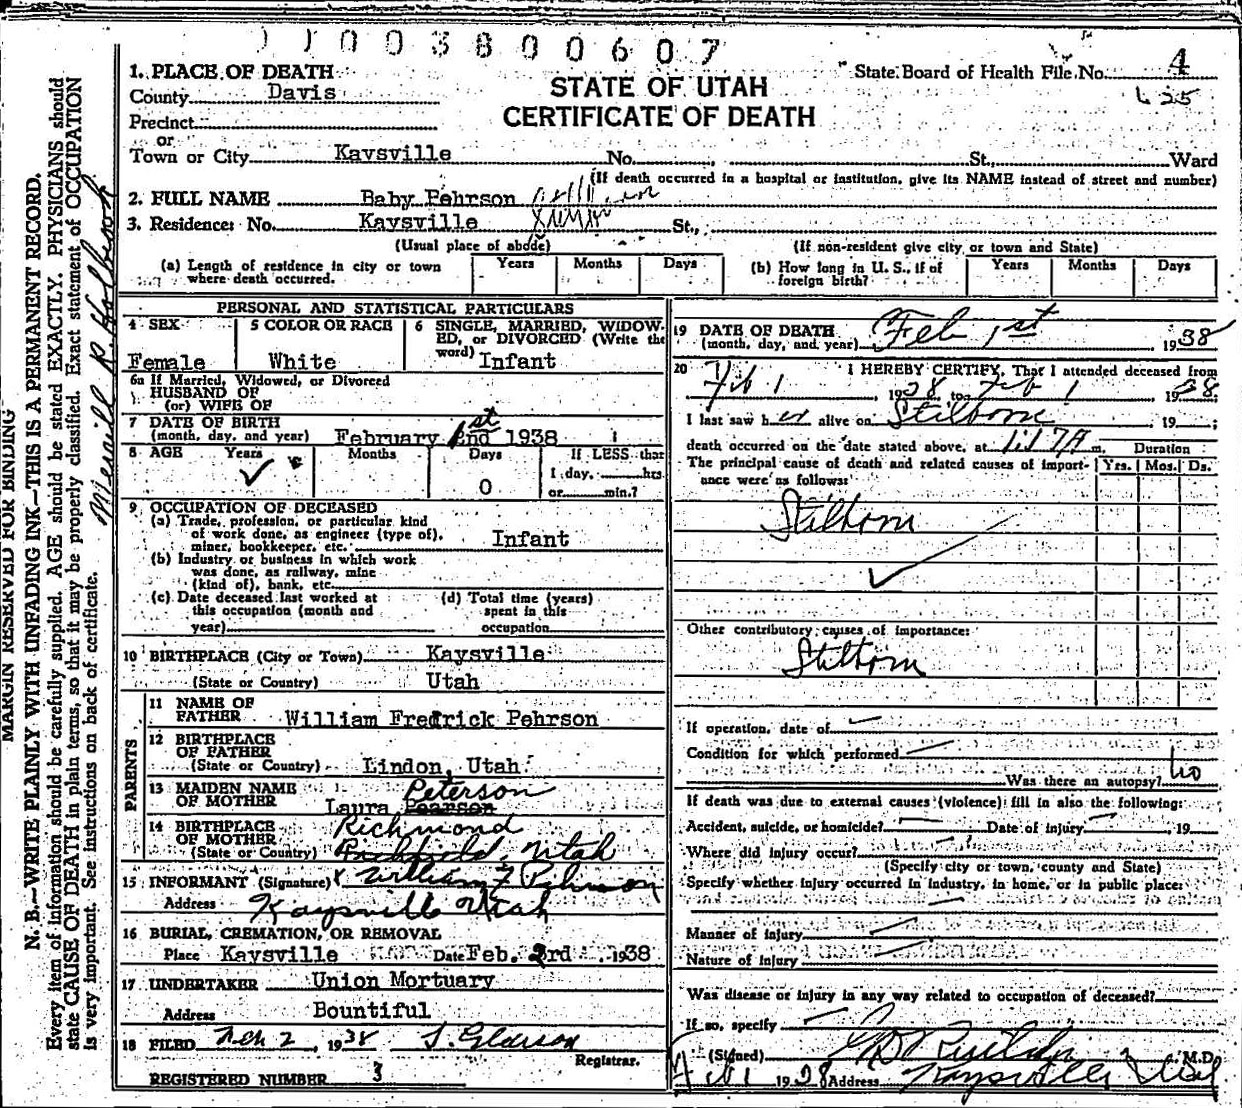 003800607
1. PLACE OF DEATH
County Davis
Precinct
or
Town or City Kaysville No. St., Ward
STATE OF UTAH
CERTIFICATE OF DEATH
State Board of Health File No. 4
625
(If death occurred in a hospital or institution, give its NAME instead of street and number)
2. FULL NAME Baby Pehrson
3. Residence: No. Kaysville St.,
(Usual place of abode) (If non-resident give city or town and State)
(a) Length of residence in city or town where death occurred. Years Months Days
(b) How long in U. S., if of foreign birth? Years Months Days
PERSONAL AND STATISTICAL PARTICULARS
4 SEX 5 COLOR OR RACE 6 SINGLE, MARRIED, WIDOWED, or DIVORCED (Write the word)
Female White Infant
6a If Married, Widowed, or Divorced
HUSBAND OF
(or) WIFE OF
7 DATE OF BIRTH
(month, day, and year) February 1st 2nd 1938
8 AGE Years Months Days If LESS than
1 day, hrs.
or min.?
0
9 OCCUPATION OF DECEASED
(a) Trade, profession, or particular kind
of work done, as engineer (type of),
miner, bookkeeper, etc. Infant
(b) Industry or business in which work
was done, as railway, mine
(kind of), bank, etc.
(c) Date deceased last worked at
this occupation (month and
year)
(d) Total time (years)
spent in this
occupation
10 BIRTHPLACE (City or Town) Kaysville
(State or Country) Utah
PARENTS
11 NAME OF
FATHER William Fredrick Pehrson
12 BIRTHPLACE
OF FATHER
(State or Country) Lindon, Utah
13 MAIDEN NAME Peterson
OF MOTHER Laura Pearson
14 BIRTHPLACE Richmond
OF MOTHER
(State or Country) Richfield, Utah
15 INFORMANT (Signature) x William F Pehrson
Address Kaysville Utah
16 BURIAL, CREMATION, OR REMOVAL
Place Kaysville Date Feb. 3rd 1938
17 UNDERTAKER Union Mortuary
Address Bountiful
18 FILED 2, 1938
Registrar.
REGISTERED NUMBER 3
19 DATE OF DEATH
(month, day, and year) Feb 1st 1938
20 I HEREBY CERTIFY, That I attended deceased from
Feb 1 1938 to Feb 1 1938
I last saw her alive on Stilborn, 19 ;
death occurred on the date stated above, at m. Duration
The principal cause of death and related causes of importance were as follows: Yrs. Mos. Ds.
Stilborn
Other contributory causes of importance:
Stilborn
If operation, date of
Condition for which performed
Was there an autopsy? no
If death was due to external causes (violence) fill in also the following:
Accident, suicide, or homicide? Date of injury , 19
Where did injury occur?
(Specify city or town, county and State)
Specify whether injury occurred in industry, in home, or in public place:
Manner of injury
Nature of injury
Was disease or injury in any way related to occupation of deceased?
If so, specify
(Signed) M.D.
Feb 1 1938 Address Kaysville Utah
MARGIN RESERVED FOR BINDING
N. B.—WRITE PLAINLY WITH UNFADING INK—THIS IS A PERMANENT RECORD.
Every item of information should be carefully supplied. AGE should be stated EXACTLY. PHYSICIANS should
state CAUSE OF DEATH in plain terms, so that it may be properly classified. Exact statement of OCCUPATION
is very important. See instructions on back of certificate.
Merrill R Holbrook